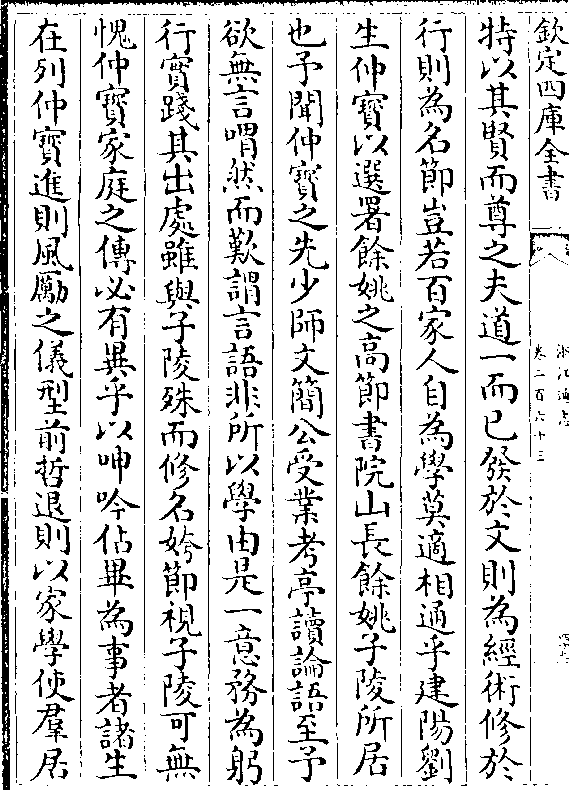 欽定四庫全書
浙江通志
卷二百六十三
特以其賢而尊之夫道一而已發於文則為經術修於
行則為名節豈若百家人自為學莫適相通乎建陽劉
生仲寳以選署餘姚之高節書院山長餘姚子陵所居
也予聞仲寳之先少師文簡公受業考亭讀論語至予
欲無言喟然而歎謂言語非所以學由是一意務為躬
行實踐其出處雖與子陵殊而修名姱節視子陵可無
愧仲寳家庭之傳必有異乎以呻吟佔畢為事者諸生
在列仲寳進則風勵之儀型前哲退則以家學使羣居